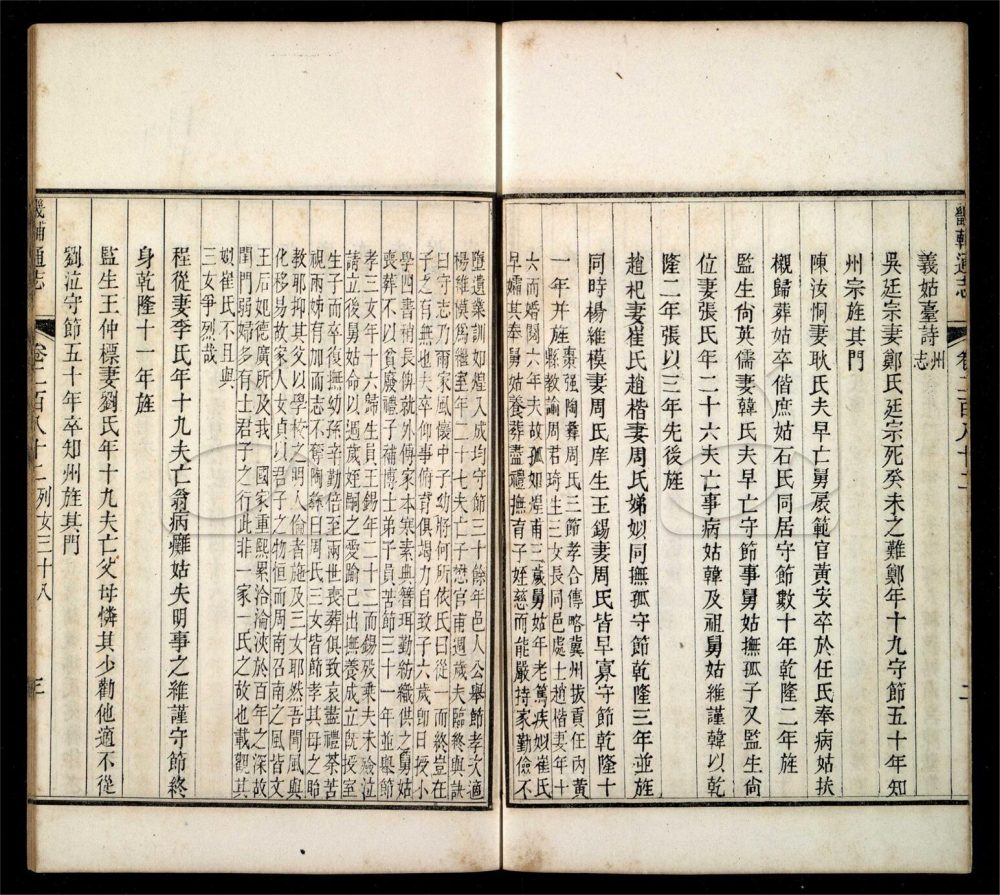 畿輔通志
卷二百八十二
二
義姑臺詩州志
吳廷宗妻鄭氏廷宗死癸未之難鄭年十九守節五十年知
州宗旌其門
陳汝恫妻耿氏夫早亡舅展範官黃安卒於任氏奉病姑扶
櫬歸葬姑卒偕庶姑石氏同居守節數十年乾隆二年旌
監生尙英儒妻韓氏夫早亡守節事舅姑撫孤子又監生尙
位妻張氏年二十六夫亡事病姑韓及祖舅姑維謹韓以乾
隆二年張以三年先後旌
趙杞妻崔氏趙楷妻周氏娣姒同撫孤守節乾隆三年並旌
同時楊維模妻周氏庠生王錫妻周氏皆早寡守節乾隆十
一年并旌棗强陶彝周氏三節孝合傳略冀州拔貢任內黃
縣敎諭周君琦生三女長同邑處士趙楷妻年十
六而婚閱六年夫故孤如煌甫三歲舅姑年老篤疾姒崔氏
早孀其奉舅姑養葬盡禮撫育子姪慈而能嚴持家勤儉不
墮遺業訓如煌入成均守節三十餘年邑人公舉節孝次適
楊維模爲繼室年二十七夫亡子懋官甫週歲夫臨終與訣
曰守志乃爾家風懷中子幼將何所依氏曰從一而終豈在
子之有無也夫卒仰事俯育俱竭力自致子六歲卽日授小
學四書稍長俾就外傅家本寒素典簪珥勤紡織供之舅姑
喪葬不以貧廢禮子補博士弟子員苦節三十一年並舉節
孝三女年十六歸生員王錫年二十二而錫歿乗夫未殮泣
請立後舅姑命以過歲姪嗣之愛踰己出撫養成立旣授室
生子而卒復撫幼孫辛勤倍至兩世喪葬俱致哀盡禮荼苦
視兩姊有加而志不奪陶彝曰周氏三女皆節孝其母之貽
敎耶抑其父以學校之明人倫者施及三女耶然吾聞風與
化移易故家人女貞以君子之物恒而周南召南之風皆文
王后妃德廣所及我 國家重熙累洽淪浹於百年之深故
閨門弱婦多有士君子之行此非一家一氏之故也載觀其
姒崔氏不且與
三女爭烈哉
程從妻李氏年十九夫亡翁病癱姑失明事之維謹守節終
身乾隆十一年旌
監生王仲標妻劉氏年十九夫亡父母憐其少勸他適不從
劉泣守節五十年卒知州旌其門
畿輔通志
卷二百八十二 列女三十八
三